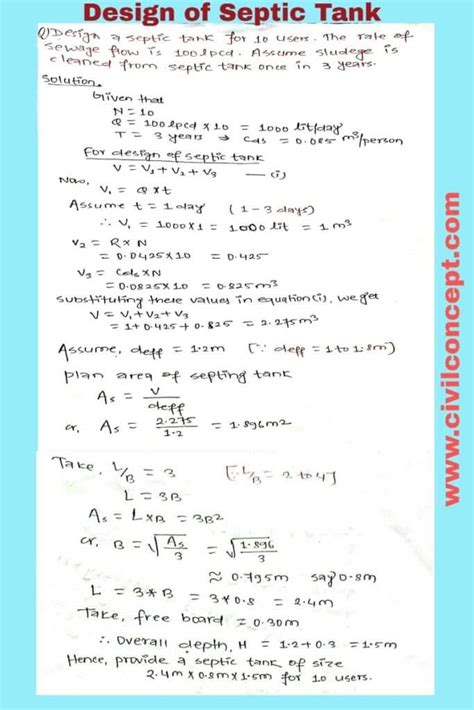 Design of Septic Tank
Q) Design a septic tank for 10 users. The rate of
sewage flow is 100 lpcd. Assume sludege is
cleaned from septic tank once in 3 years.
Solution.
Given that
N = 10
Q = 100 lpcd × 10 = 1000 lit/day
T = 3 years ⇒ Cds = 0.085 m³/person
For design of septic tank
V = V₁ + V₂ + V₃ — (i)
Now,
V₁ = Q × t
Assume t = 1 day (1-3 days)
∴ V₁ = 1000 × 1 = 1000 lit = 1 m³
V₂ = R × N
= 0.0425 × 10 = 0.425
V₃ = Cds × N
= 0.0825 × 10 = 0.825 m³
Substituting these values in equation (i), we get
V = V₁ + V₂ + V₃
= 1 + 0.425 + 0.825 = 2.275 m³
Assume, deff = 1.2m [∵ deff = 1 to 1.8m]
plan area of septing tank
As = V/deff
or, As = 2.275/1.2 = 1.896 m2
Take, L/B = 3 [∵ L/B = 2 to 4]
L = 3B
As = L × B = 3B²
or, B = √(As/3) = √(1.896/3)
≈ 0.795m say 0.8m
L = 3 * B = 3 * 0.8 = 2.4m
Take, free board = 0.30m
∴ Overall depth, H = 1.2 + 0.3 = 1.5m
Hence, provide a septic tank of size
2.4m × 0.8m × 1.5m for 10 users.
www.civilconcept.com